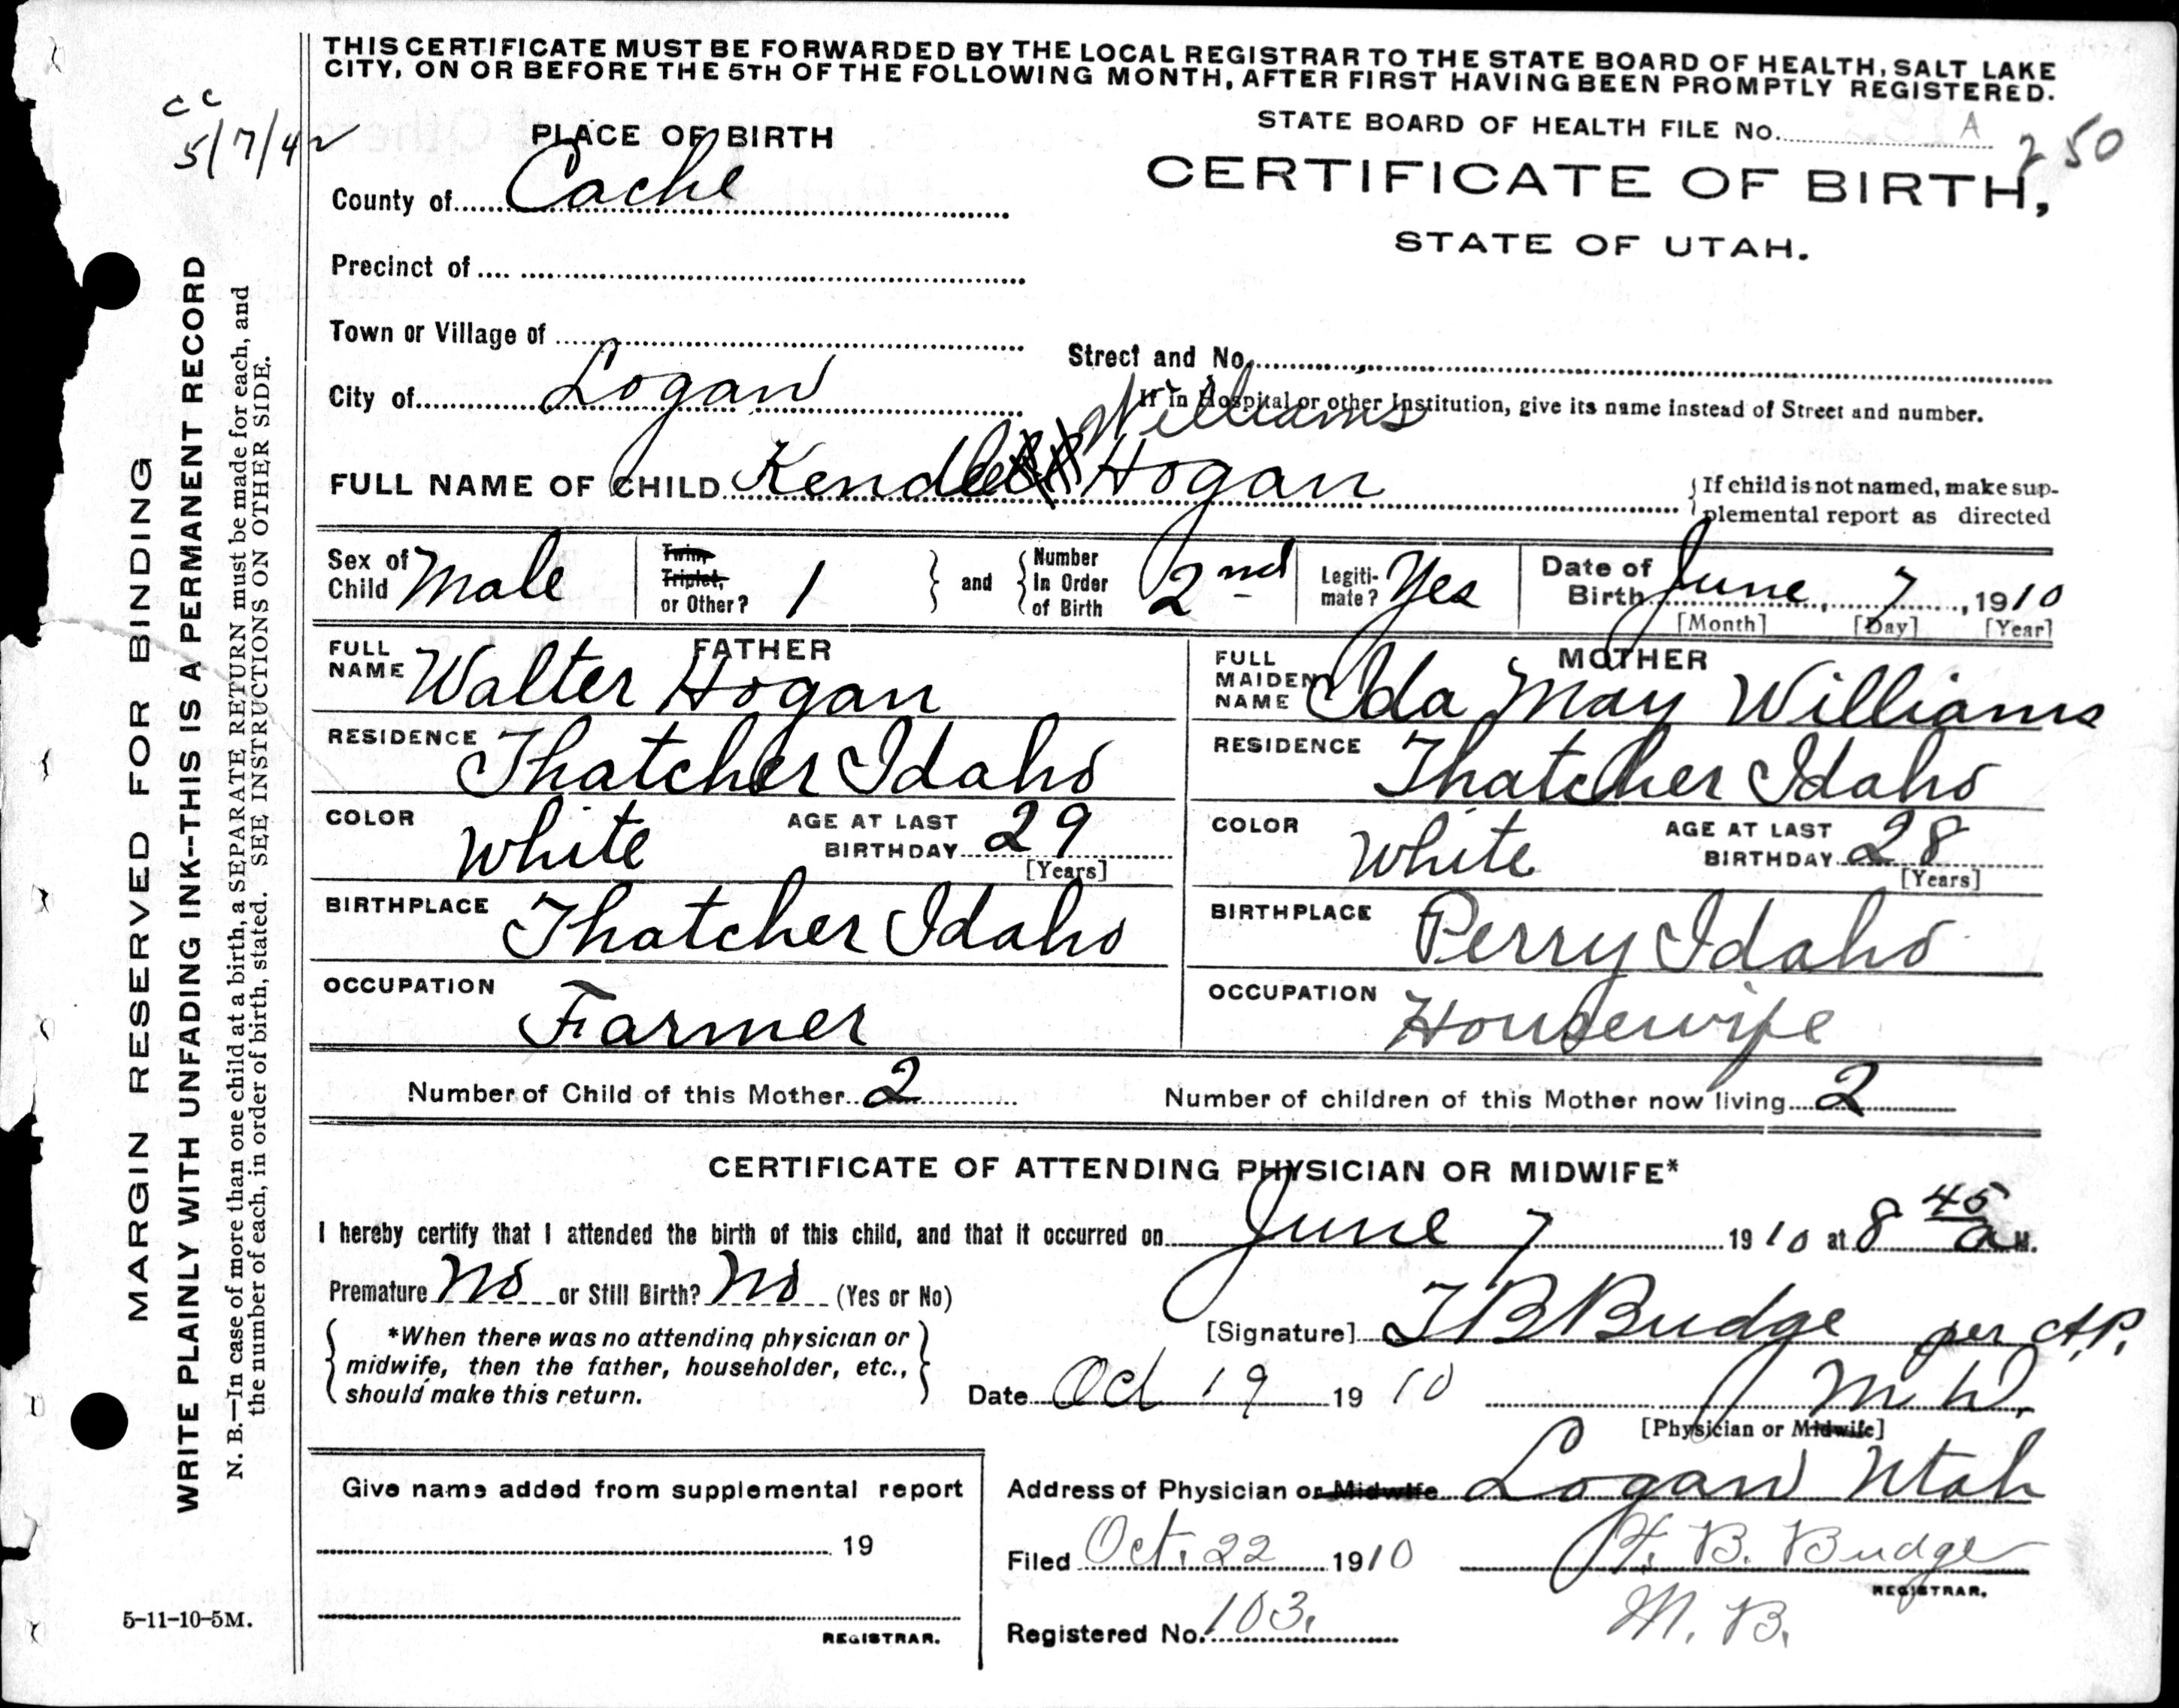 THIS CERTIFICATE MUST BE FORWARDED BY THE LOCAL REGISTRAR TO THE STATE BOARD OF HEALTH, SALT LAKE
CITY, ON OR BEFORE THE 5TH OF THE FOLLOWING MONTH, AFTER FIRST HAVING BEEN PROMPTLY REGISTERED.
cc
5/7/42
STATE BOARD OF HEALTH FILE No. A
250
PLACE OF BIRTH
CERTIFICATE OF BIRTH,
STATE OF UTAH.
County of Cache
Precinct of
Town or Village of
Street and No.
City of Logan
If in Hospital or other Institution, give its name instead of Street and number.
Williams
FULL NAME OF CHILD Kendell Hogan
If child is not named, make sup-
plemental report as directed
Sex of Child Male
Twin, Triplet, or Other? 1
and
Number In Order of Birth 2nd
Legiti-mate? Yes
Date of Birth June 7, 1910
[Month] [Day] [Year]
FATHER
FULL NAME Walter Hogan
RESIDENCE Thatcher Idaho
COLOR White
AGE AT LAST BIRTHDAY 29
[Years]
BIRTHPLACE Thatcher Idaho
OCCUPATION Farmer
MOTHER
FULL MAIDEN NAME Ida May Williams
RESIDENCE Thatcher Idaho
COLOR White
AGE AT LAST BIRTHDAY 28
[Years]
BIRTHPLACE Perry Idaho
OCCUPATION Housewife
Number of Child of this Mother 2
Number of children of this Mother now living 2
CERTIFICATE OF ATTENDING PHYSICIAN OR MIDWIFE*
I hereby certify that I attended the birth of this child, and that it occurred on June 7 1910 at 8 45 a M.
Premature No or Still Birth? No (Yes or No)
*When there was no attending physician or
midwife, then the father, householder, etc.,
should make this return.
[Signature] T B Budge per A.P.
Date Oct 19 1910
[Physician or Midwife]
Give name added from supplemental report
19
REGISTRAR.
Address of Physician or Midwife Logan Utah
Filed Oct. 22 1910 T. B. Budge
REGISTRAR.
Registered No. 103.
M. B.
5-11-10-5M.
MARGIN RESERVED FOR BINDING
WRITE PLAINLY WITH UNFADING INK--THIS IS A PERMANENT RECORD
N. B.—In case of more than one child at a birth, a SEPARATE RETURN must be made for each, and
the number of each, in order of birth, stated. SEE INSTRUCTIONS ON OTHER SIDE.